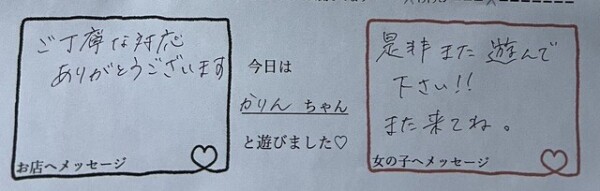 ご丁寧な対応
ありがとうございます
お店へメッセージ
今日は
かりん ちゃん
と遊びました♡
是非また遊んで
下さい!!
また来てね。
女の子へメッセージ